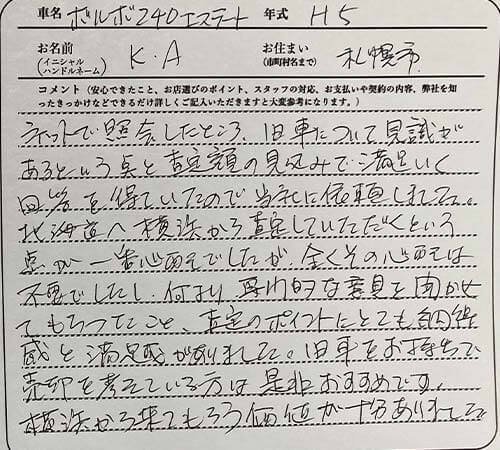 車名 ボルボ240エステート 年式 H5
お名前 (イニシャル ハンドルネーム) K.A お住まい (市町村名まで) 札幌市
コメント(安心できたこと、お店選びのポイント、スタッフの対応、お支払いや契約の内容、弊社を知
ったきっかけなどできるだけ詳しくご記入いただきますと大変参考になります。)
ネットで照会したところ、旧車について見識が
あるという点と査定額の見込みで満足いく
回答を得ていたので当社に依頼しました。
北海道へ横浜から査定していただくという
点が一番心配でしたが、全くその心配は
不要でしたし、何より専門的な意見を聞かせ
てもらったこと、査定のポイントにとても納得
感と満足感がありました。旧車をお持ちで
売却を考えている方は是非おすすめです。
横浜から来てもらう価値が十分ありました